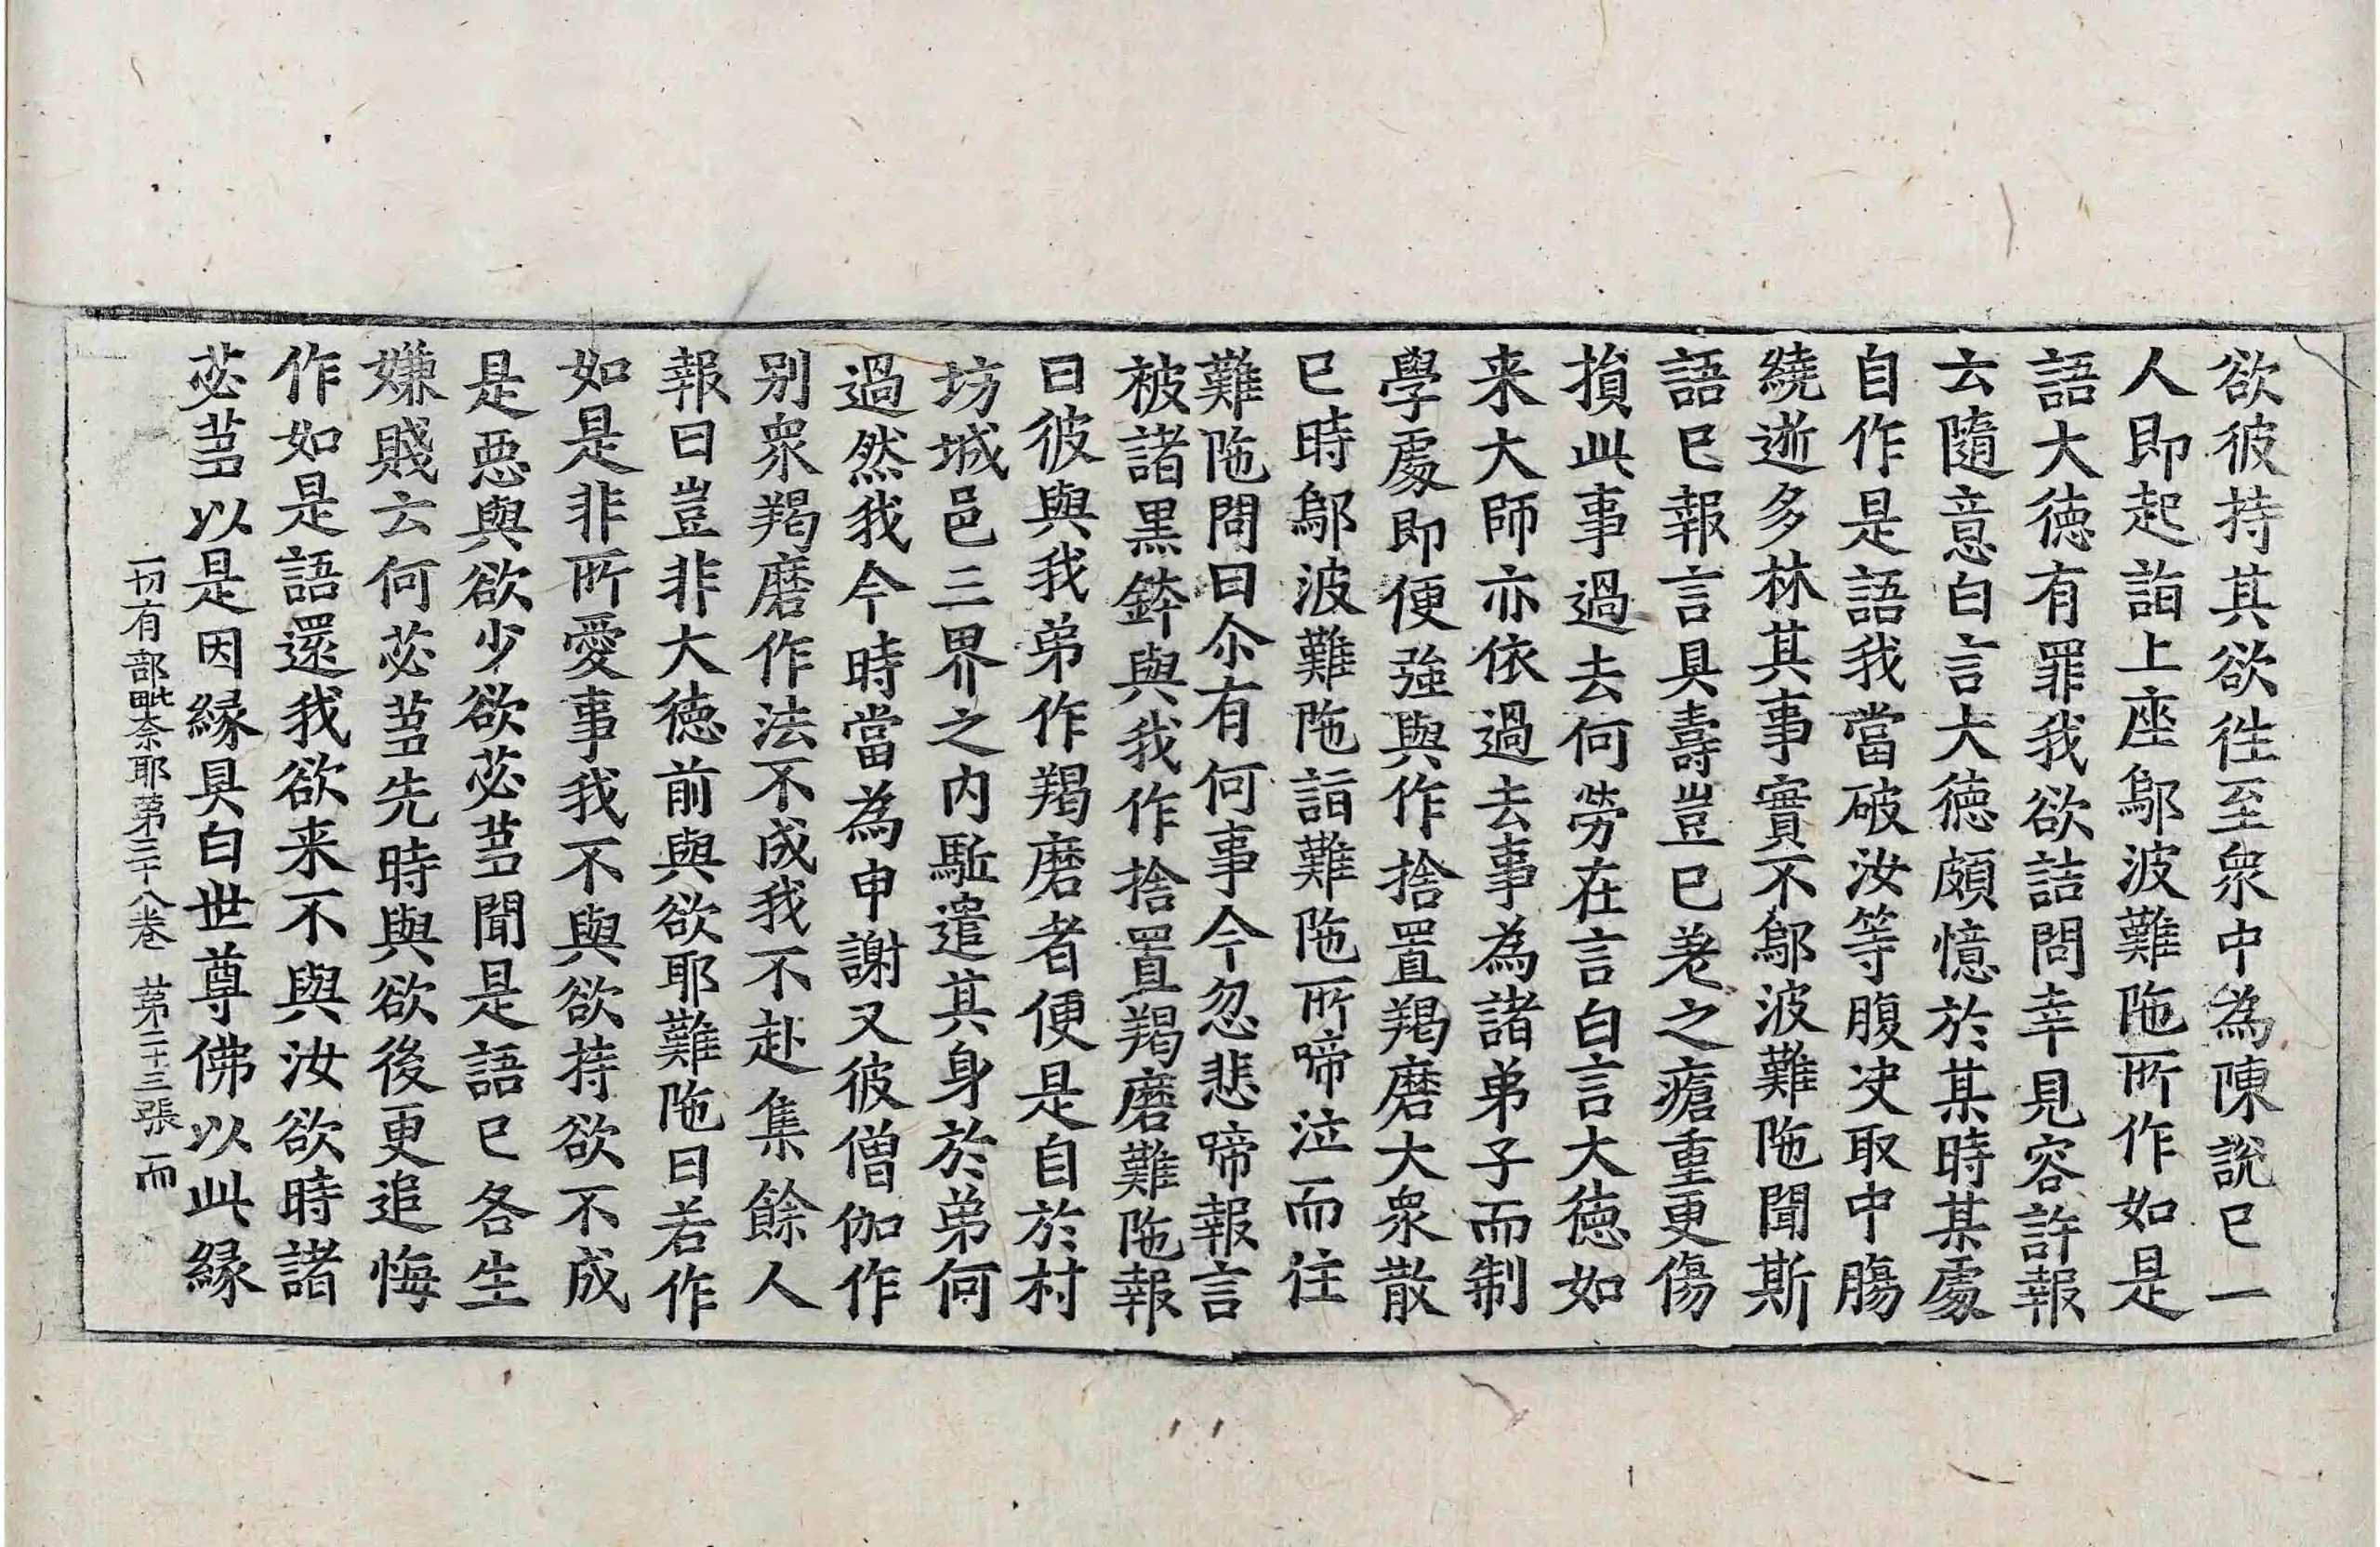 欲彼持其欲徃至衆中為陳說已一
人即起詣上座鄔波難陁所作如是
語大徳有罪我欲詰問幸見容許報
云隨意白言大徳頗憶於某時某處
自作是語我當破汝等腹决取中膓
繞逝多林其事實不鄔波難陁聞斯
語已報言具壽豈已羗之瘡重更傷
損此事過去何勞在言白言大徳如
来大師亦依過去事為諸弟子而制
學處即便強與作捨置羯磨大衆散
已時鄔波難陁詣難陁所啼泣而住
難陁問曰尒有何事今忽悲啼報言
被諸黒鉢與我作捨置羯磨難陁報
曰彼與我弟作羯磨者便是自於村
坊城邑三界之内駈遣其身於弟何
過然我今時當為申謝又彼僧伽作
别衆羯磨作法不成我不赴集餘人
報曰豈非大徳前與欲耶難陁曰若作
如是非所愛事我不與欲持欲不成
是惡與欲少欲苾蒭聞是語已各生
嫌賤云何苾蒭先時與欲後更追悔
作如是語還我欲来不與汝欲時諸
苾蒭以是因縁具白世尊佛以此縁
一切有部毗奈耶苐三十八卷 苐二十三張 而